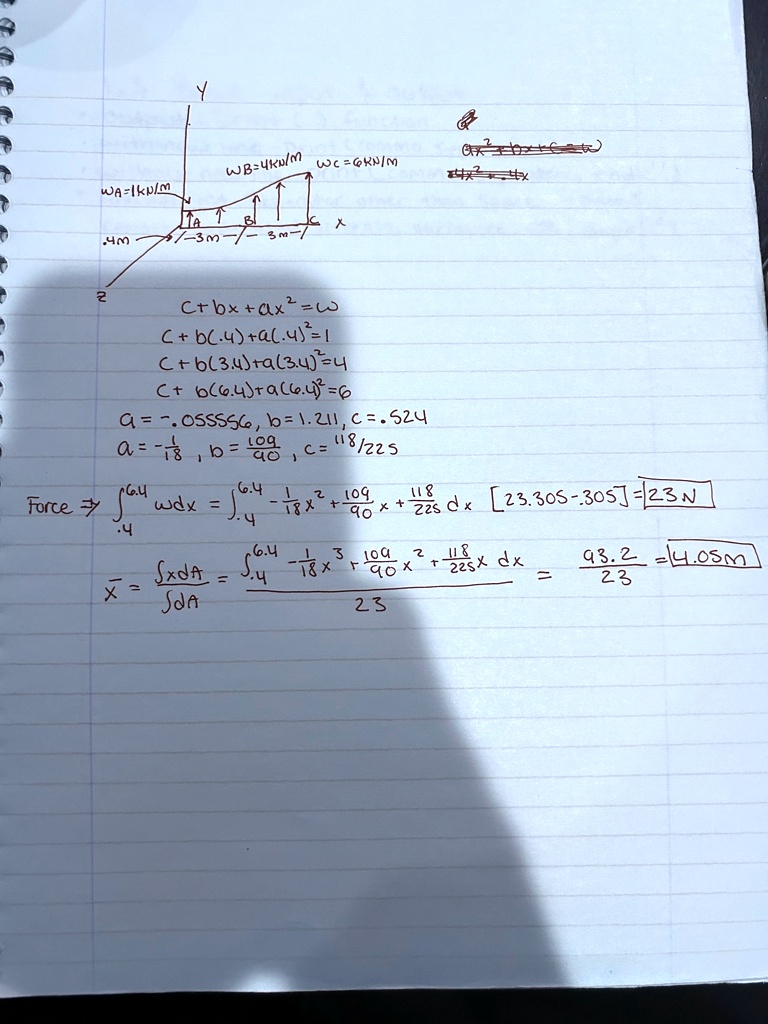 Y
ax² + bx + c = w
.4x² + .4x
WB=4KN/M WC=6KN/M
WA=1KN/M
A B C X
.4M 3M 3M
Z
C+bx+ax²=W
C+b(.4)+a(.4)²=1
C+b(3.4)+a(3.4)²=4
C+ b(6.4)+a(6.4)²=6
a=-.055556, b=1.211, c=.524
a=-1/18, b=109/90, c=118/225
Force ⇒ ∫.4^6.4 wdx = ∫.4^6.4 -1/18x²+109/90x+118/225 dx [23.305-.305]=23N
x̄ = ∫xdA/∫dA = ∫.4^6.4 -1/18x³+109/90x²+118/225x dx/23 = 93.2/23 =4.05M